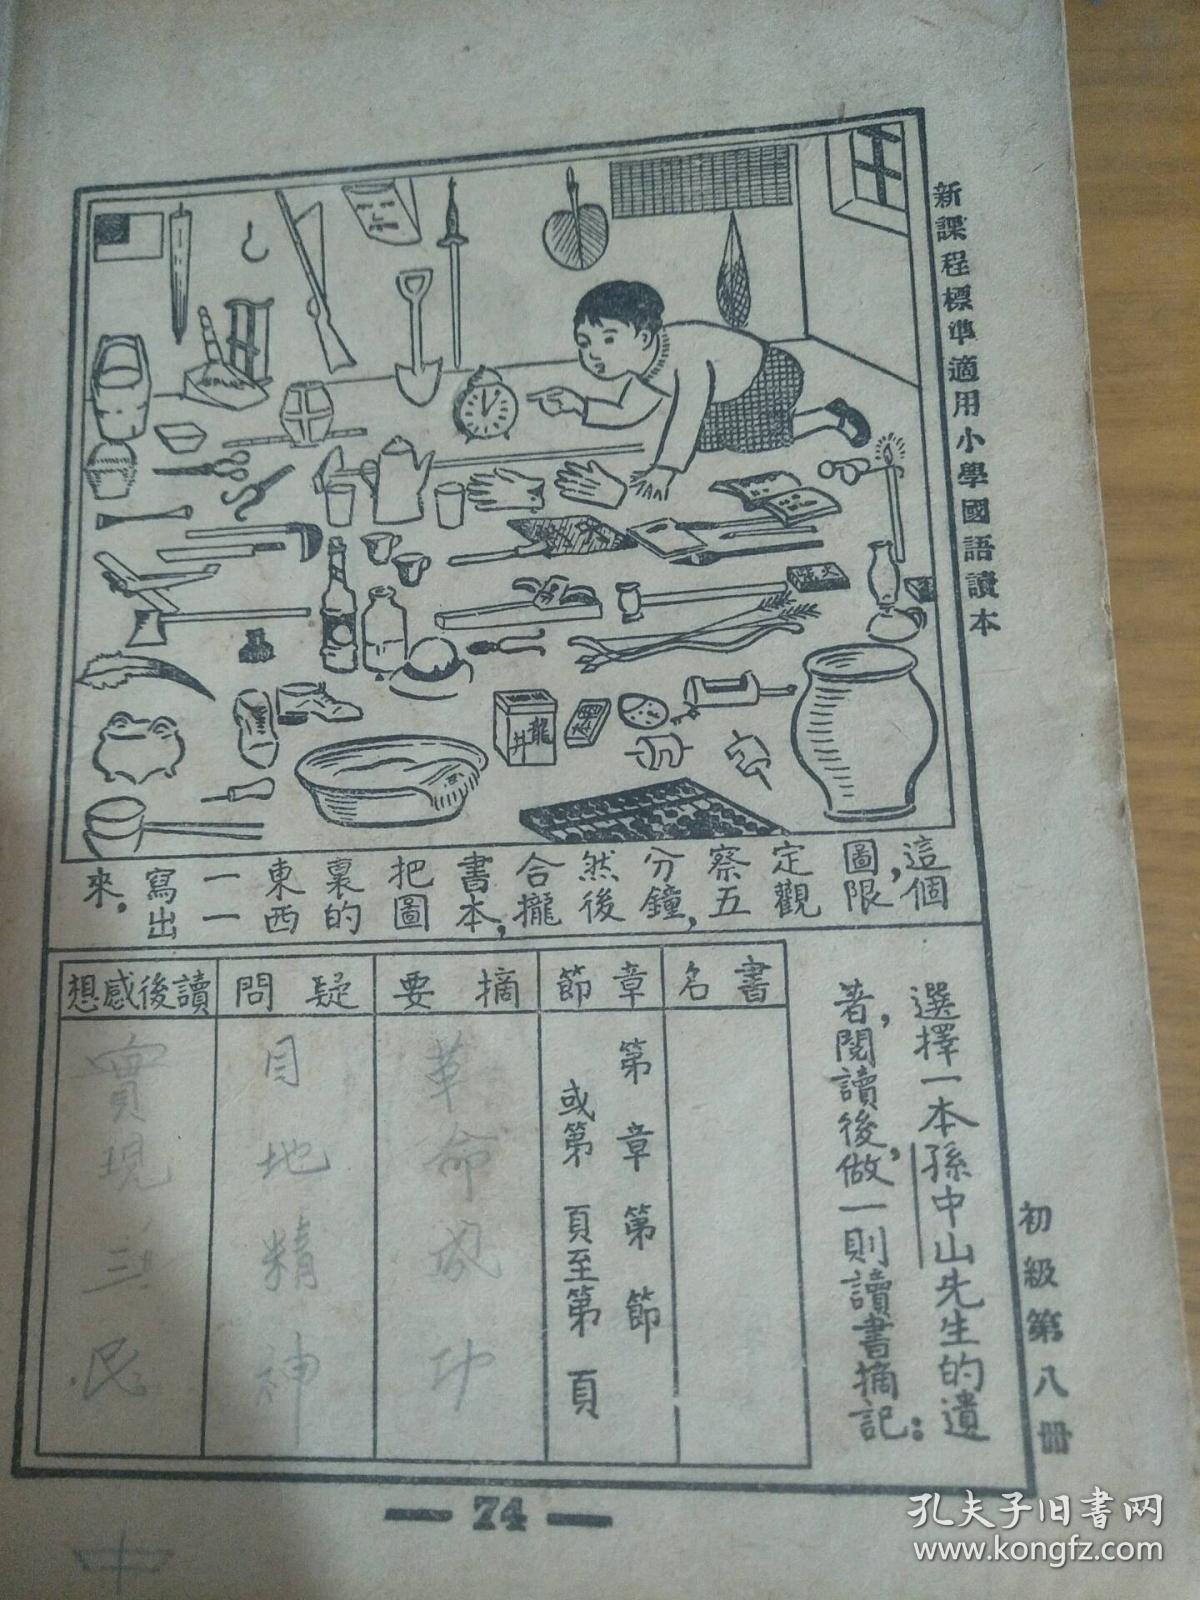 新課程標準適用小學國語讀本
初級第八冊
龍井
這個圖,限定觀察五分鐘,然後合攏書本,把圖裏的東西一一寫出來。
選擇一本孫中山先生的遺著,閱讀後,做一則讀書摘記:
書名
章節
摘要
疑問
讀後感想
第 章 第 節
或第 頁至第 頁
革命成功
目地精神
實現三民
— 74 —
中
孔夫子旧书网
www.kongfz.com